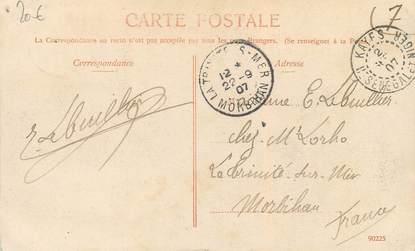 20€
7
CARTE POSTALE
La Correspondance au recto n'est pas acceptée par tous les Étrangers. (Se renseigner à la
Correspondance
Adresse
LA TRINITÉ-S-MER
12 *
22 -9
07
MORBIHAN
KAYES
07
E. Lebuillier
E. Lebuillier
chez Mr Lorho
La Trinité sur Mer
Morbihan
France
90225